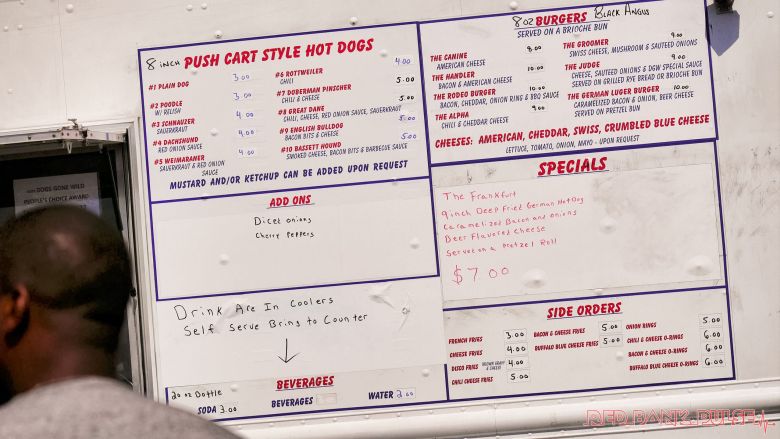 DOGS GONE WILD
PEOPLE'S CHOICE AWARD
8 inch PUSH CART STYLE HOT DOGS
#1 PLAIN DOG 3.00
#2 POODLE 3.00
W/ RELISH
#3 SCHNAUZER 4.00
SAUERKRAUT
#4 DACHSHUND 4.00
RED ONION SAUCE
#5 WEIMARANER 4.00
SAUERKRAUT & RED ONION
SAUCE
#6 ROTTWEILER 4.00
CHILI
#7 DOBERMAN PINSCHER 5.00
CHILI & CHEESE
#8 GREAT DANE 5.00
CHILI, CHEESE, RED ONION SAUCE, SAUERKRAUT
#9 ENGLISH BULLDOG 5.00
BACON BITS & CHEESE
#10 BASSETT HOUND 5.00
SMOKED CHEESE, BACON BITS & BARBECUE SAUCE
MUSTARD AND/OR KETCHUP CAN BE ADDED UPON REQUEST
ADD ONS
Diced onions
Cherry Peppers
Drink Are In Coolers
Self Serve Bring to Counter
BEVERAGES
20 oz Bottle
SODA 3.00
BEVERAGES
WATER 2.00
8 oz BURGERS Black Angus
SERVED ON A BRIOCHE BUN
THE CANINE 8.00
AMERICAN CHEESE
THE HANDLER 10.00
BACON & AMERICAN CHEESE
THE RODEO BURGER 10.00
BACON, CHEDDAR, ONION RING & BBQ SAUCE
THE ALPHA 9.00
CHILI & CHEDDAR CHEESE
THE GROOMER 9.00
SWISS CHEESE, MUSHROOM & SAUTEED ONIONS
THE JUDGE 9.00
CHEESE, SAUTEED ONIONS & DGW SPECIAL SAUCE
SERVED ON GRILLED RYE BREAD OR BRIOCHE BUN
THE GERMAN LUGER BURGER 10.00
CARAMELIZED BACON & ONION, BEER CHEESE
SERVED ON PRETZEL BUN
CHEESES: AMERICAN, CHEDDAR, SWISS, CRUMBLED BLUE CHEESE
LETTUCE, TOMATO, ONION, MAYO - UPON REQUEST
SPECIALS
The Frankfurt
9 inch Deep Fried German Hot Dog
Caramelized Bacon and onions
Beer Flavored Cheese
Served on a Pretzel Roll
$7.00
SIDE ORDERS
FRENCH FRIES 3.00
CHEESE FRIES 4.00
DISCO FRIES BROWN GRAVY & CHEESE 4.00
CHILI CHEESE FRIES 5.00
BACON & CHEESE FRIES 5.00
BUFFALO BLUE CHEESE FRIES 5.00
ONION RINGS 5.00
CHILI & CHEESE O-RINGS 6.00
BACON & CHEESE O-RINGS 6.00
BUFFALO BLUE CHEESE O-RINGS 6.00
RED BANK PULSE